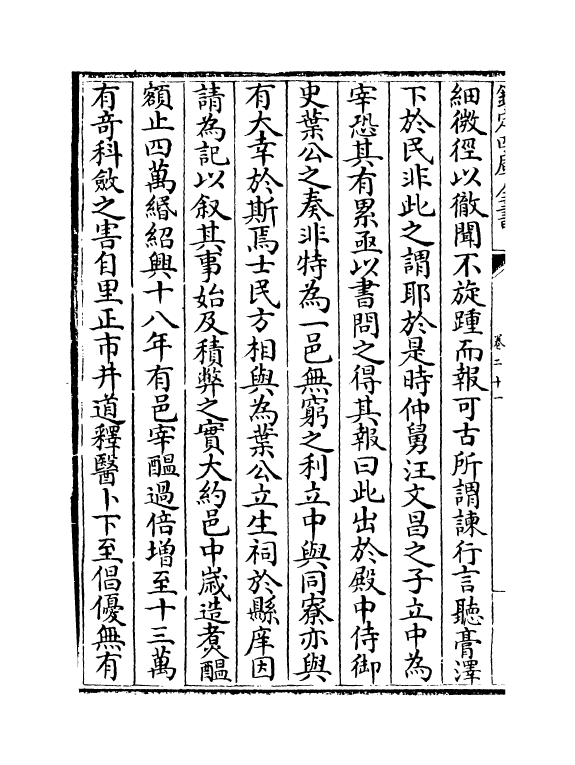 欽定四庫全書
卷二十一
細微徑以徹聞不旋踵而報可古所謂諫行言聽膏澤
下於民非此之謂耶於是時仲舅汪文昌之子立中為
宰恐其有累亟以書問之得其報曰此出於殿中侍御
史葉公之奏非特為一邑無窮之利立中與同寮亦與
有大幸於斯焉士民方相與為葉公立生祠於縣庠因
請為記以叙其事始及積弊之實大約邑中嵗造煑醖
額止四萬緡紹興十八年有邑宰醖過倍增至十三萬
有竒科斂之害自里正市井道釋醫卜下至倡優無有